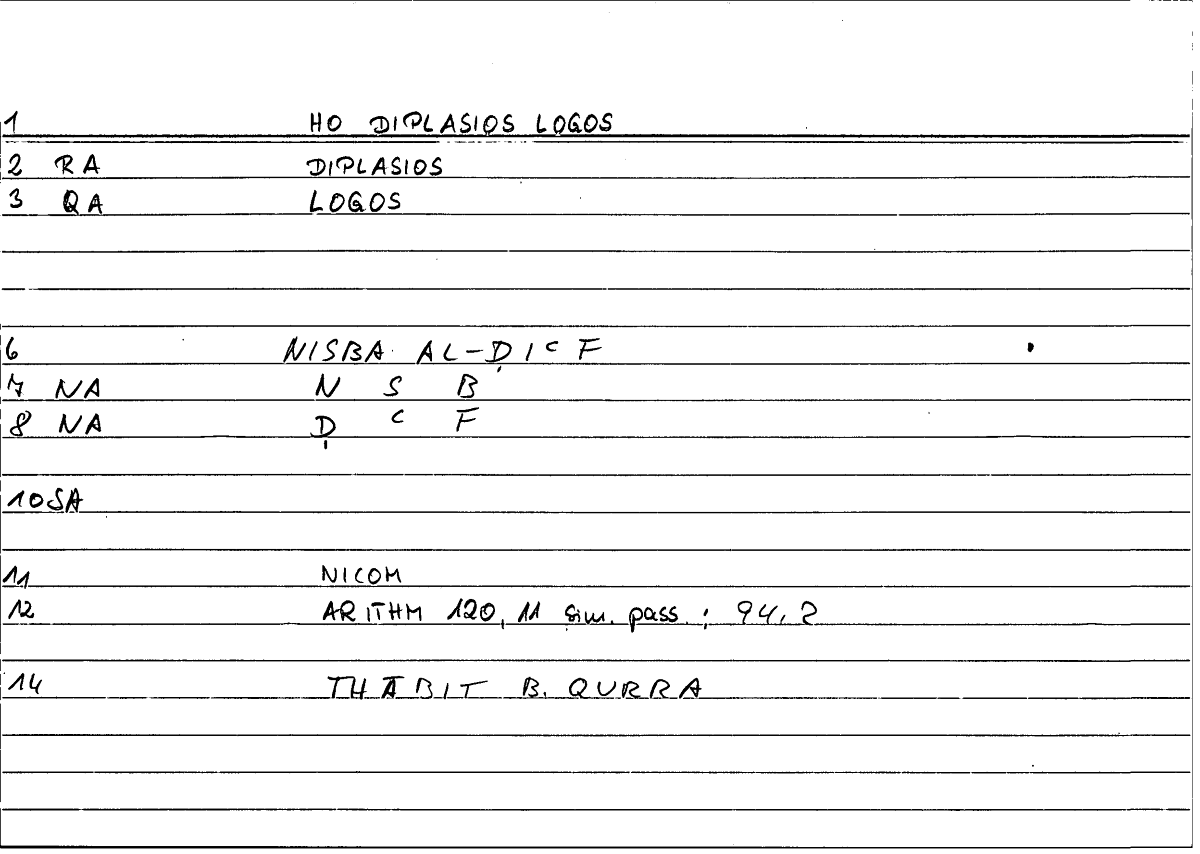 1 HO DIPLASIOS LOGOS
2 RA DIPLASIOS
3 QA LOGOS
6 NISBA AL-ḌIʿF
7 NA N S B
8 NA Ḍ ʿ F
10 SA
11 NICOM
12 ARITHM 120, 11 sim. pass.; 94,2
14 THĀBIT B. QURRA